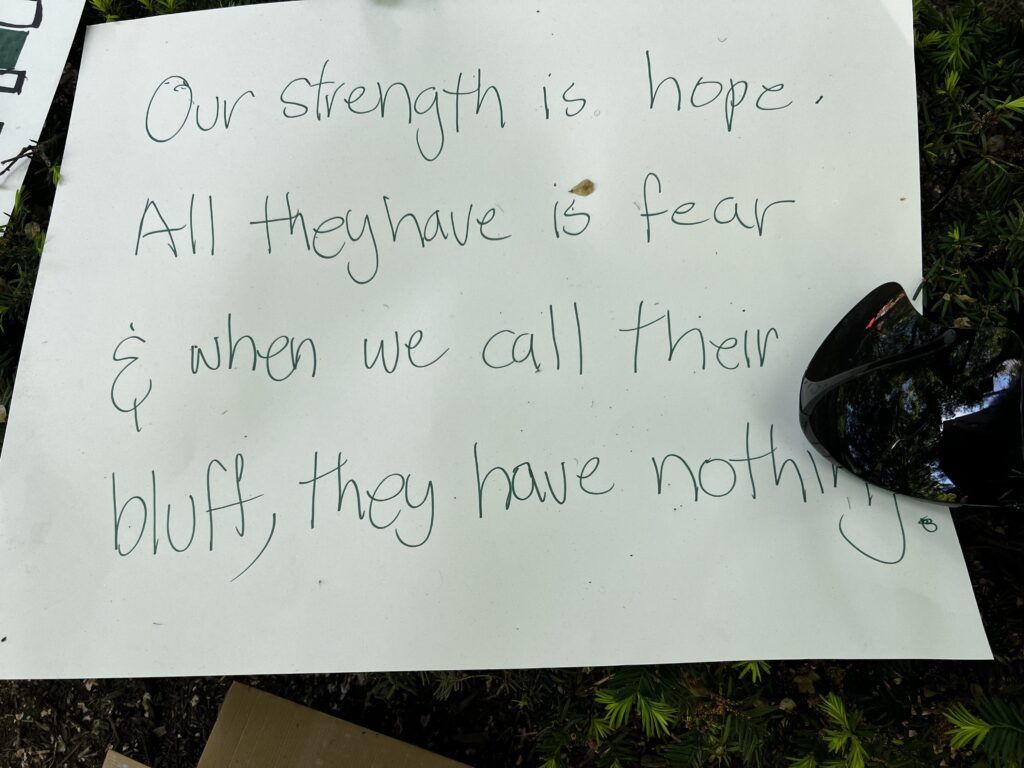 Our strength is hope.
All they have is fear
& when we call their
bluff, they have nothing.